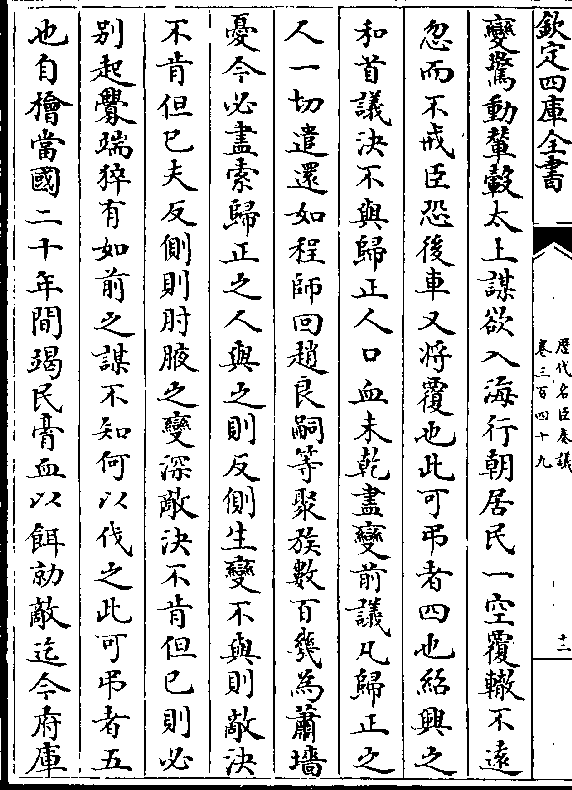 欽定四庫全書
歷代名臣奏議
卷三百四十九
十二
變驚動輦轂太上謀欲入海行朝居民一空覆轍不遠
忽而不戒臣恐後車又將覆也此可弔者四也紹興之
和首議決不與歸正人口血未乾盡變前議凡歸正之
人一切遣還如程師回趙良嗣等聚族數百幾為蕭墻
憂今必盡索歸正之人與之則反側生變不與則敵決
不肯但已夫反側則肘腋之變深敵決不肯但已則必
别起釁端猝有如前之謀不知何以伐之此可弔者五
也自檜當國二十年間竭民膏血以餌勍敵迄今府庫